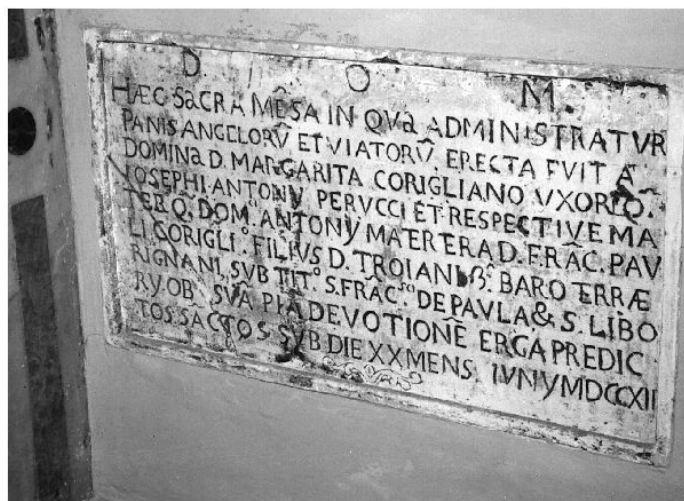 D. O M.
HÆC SaCRA MÊSA IN QVa ADMINISTRATVR
PANIS ANGELORV̄ ET VIATORV̄ ERECTA FVIT A
DOMINa D. MARGARITA CORIGLIANO VXOR
IOSEPHI ANTONIJ PERVCCI ET RESPECTIVE MA
TER Q̄. DOM. ANTONIJ MATERTERA D. FRÂC. PAV
LI CORIGLI.º FILIUS D. TROIANI BARO TERRÆ
RIGNANI, SVB TIT.º S. FRAC.sci DE PAVLA & S. LIBO
RIJ OB SVÂ PIA DEVOTIONĒ ERGA PREDIC
TOS SACTOS SVB DIE XX MENS. IVNIJ MDCCXII